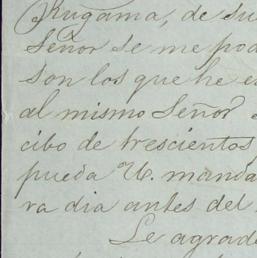 Rugama, de su
Señor se me pod
son los que he e
al mismo Señor
cibo de trescientos
pueda U. manda
ra dia antes del
Le agrade